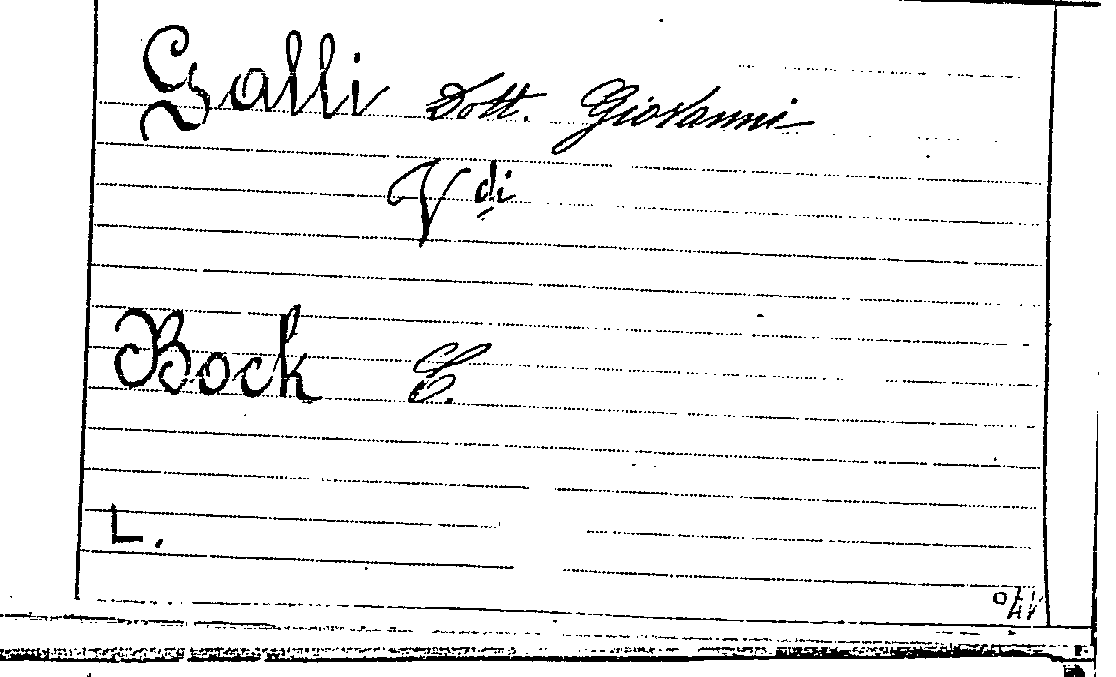 Galli Dott. Giovanni
Vdi
Bock C.
L.